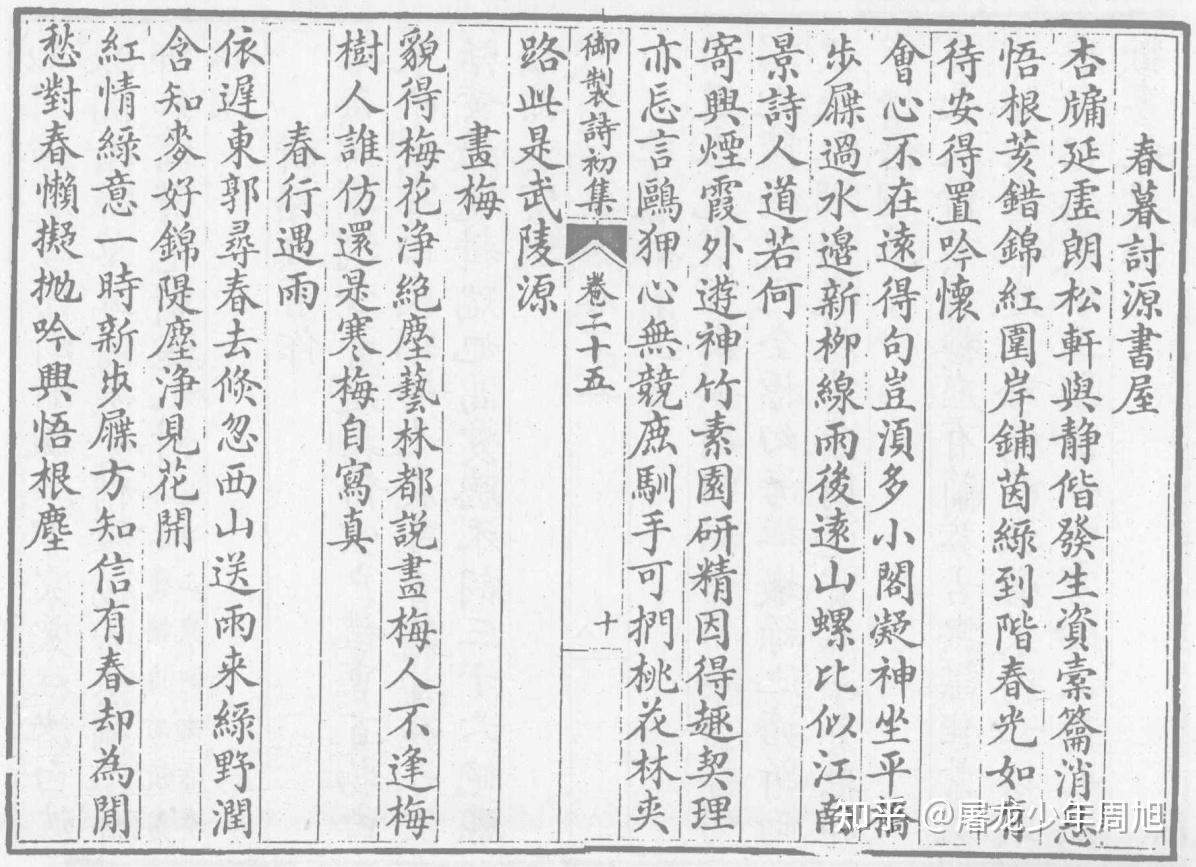 春暮討源書屋
杏牖延虗朗松軒與静偕發生資橐籥消息
悟根荄錯錦紅圍岸鋪茵綠到階春光如有
待安得置吟懷
會心不在遠得句豈湏多小閣凝神坐平橋
步屧過水邉新柳線雨後遠山螺比似江南
景詩人道若何
寄興煙霞外遊神竹素園研精因得趣契理
亦忘言鷗狎心無競庶馴手可捫桃花林夾
御製詩初集 卷三十五 十
路此是武陵源
畫梅
貌得梅花浄絶塵藝林都說畫梅人不逢梅
樹人誰仿還是寒梅自寫真
春行遇雨
依遅東郭尋春去倐忽西山送雨来綠野潤
含知麥好錦隄塵浄見花開
紅情綠意一時新步屧方知信有春却為閒
愁對春懶擬抛吟興悟根塵
知乎 @屠龙少年周旭